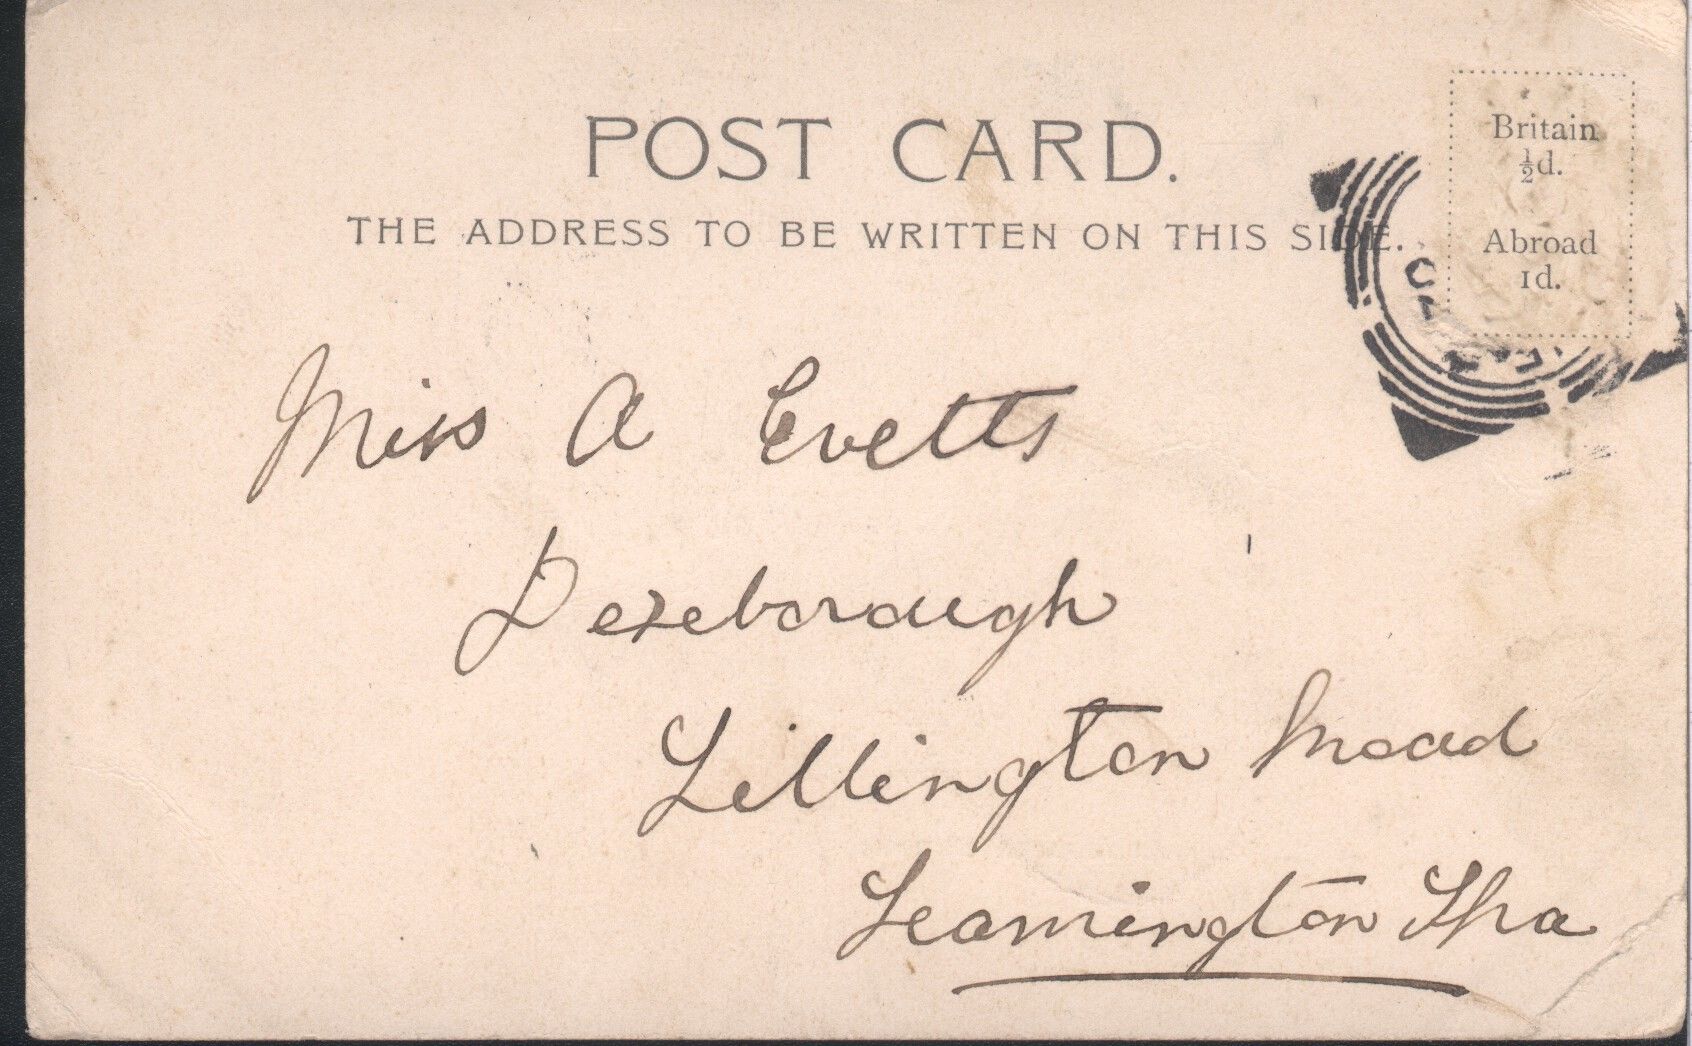 POST CARD.
THE ADDRESS TO BE WRITTEN ON THIS SIDE.
Britain
½d.
Abroad
1d.
Miss A Evetts
Dexeborough
Lillington Road
Leamington Spa